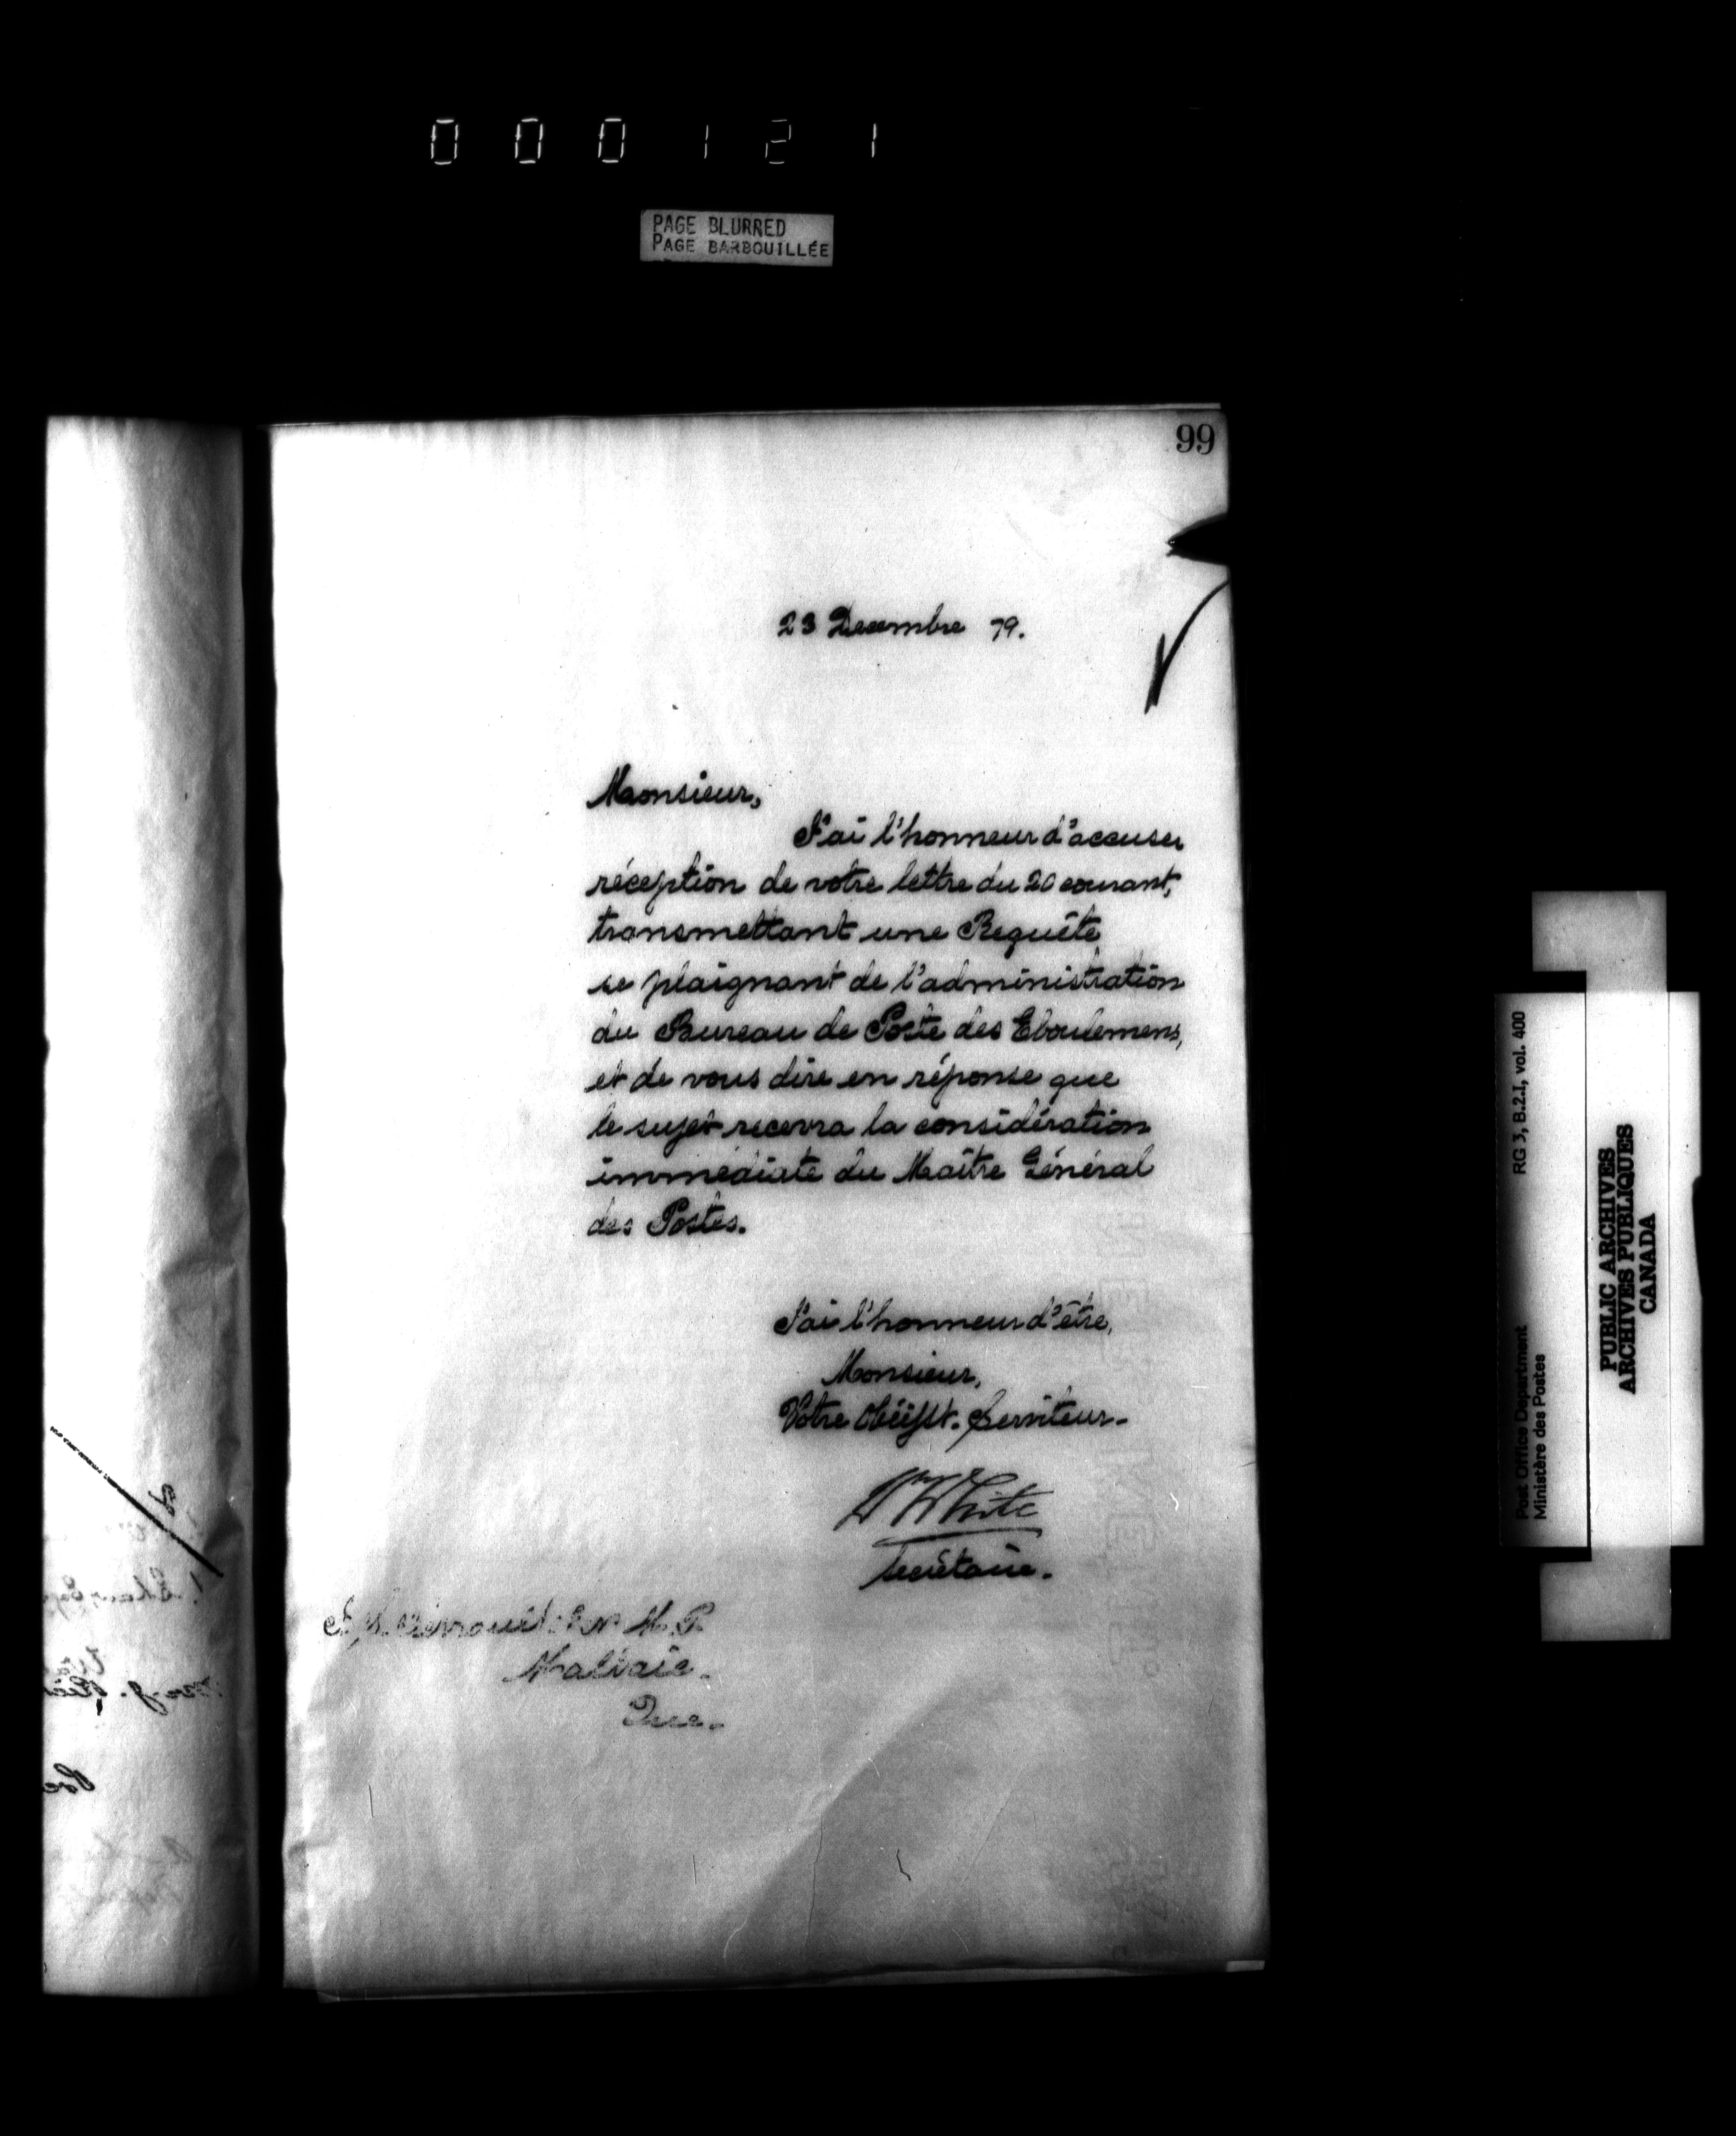 000121
PAGE BLURRED
PAGE BARBOUILLÉE
99
23 Decembre 79.
Monsieur,
J'ai l'honneur d'accuser
réception de votre lettre du 20 courant,
transmettant une Requête
se plaignant de l'administration
du Bureau de Poste des Eboulemens,
et de vous dire en réponse que
le sujet recevra la considération
immédiate du Maître Général
des Postes.
J'ai l'honneur d'être,
Monsieur,
Votre Obéisst. Serviteur.
Wm White
Secrétaire.
M.P.
Malbaie.
Que.
RG 3, B.2.I, vol. 400
Post Office Department
Ministère des Postes
PUBLIC ARCHIVES
ARCHIVES PUBLIQUES
CANADA